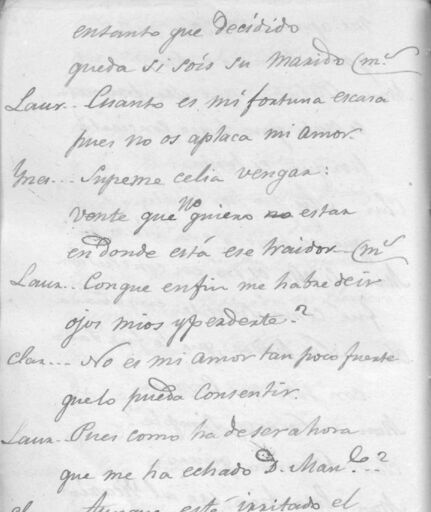 entanto que decidido
queda si sois su marido (m.s
Laur.. Cuanto es mi fortuna escasa
pues no os aplaca mi amor.
Ynes... Supeme celia vengar:
vente que no quiero no estar
en donde está ese traidor (m.s
Laur.. Conque enfin me habre de ir
ojos mios y perderte?
Clar... No es mi amor tan poco fuerte
que lo pueda Consentir.
Laur.. Pues como ha de ser ahora
que me ha echado D. Man.l...?
Aunque esté irritado el